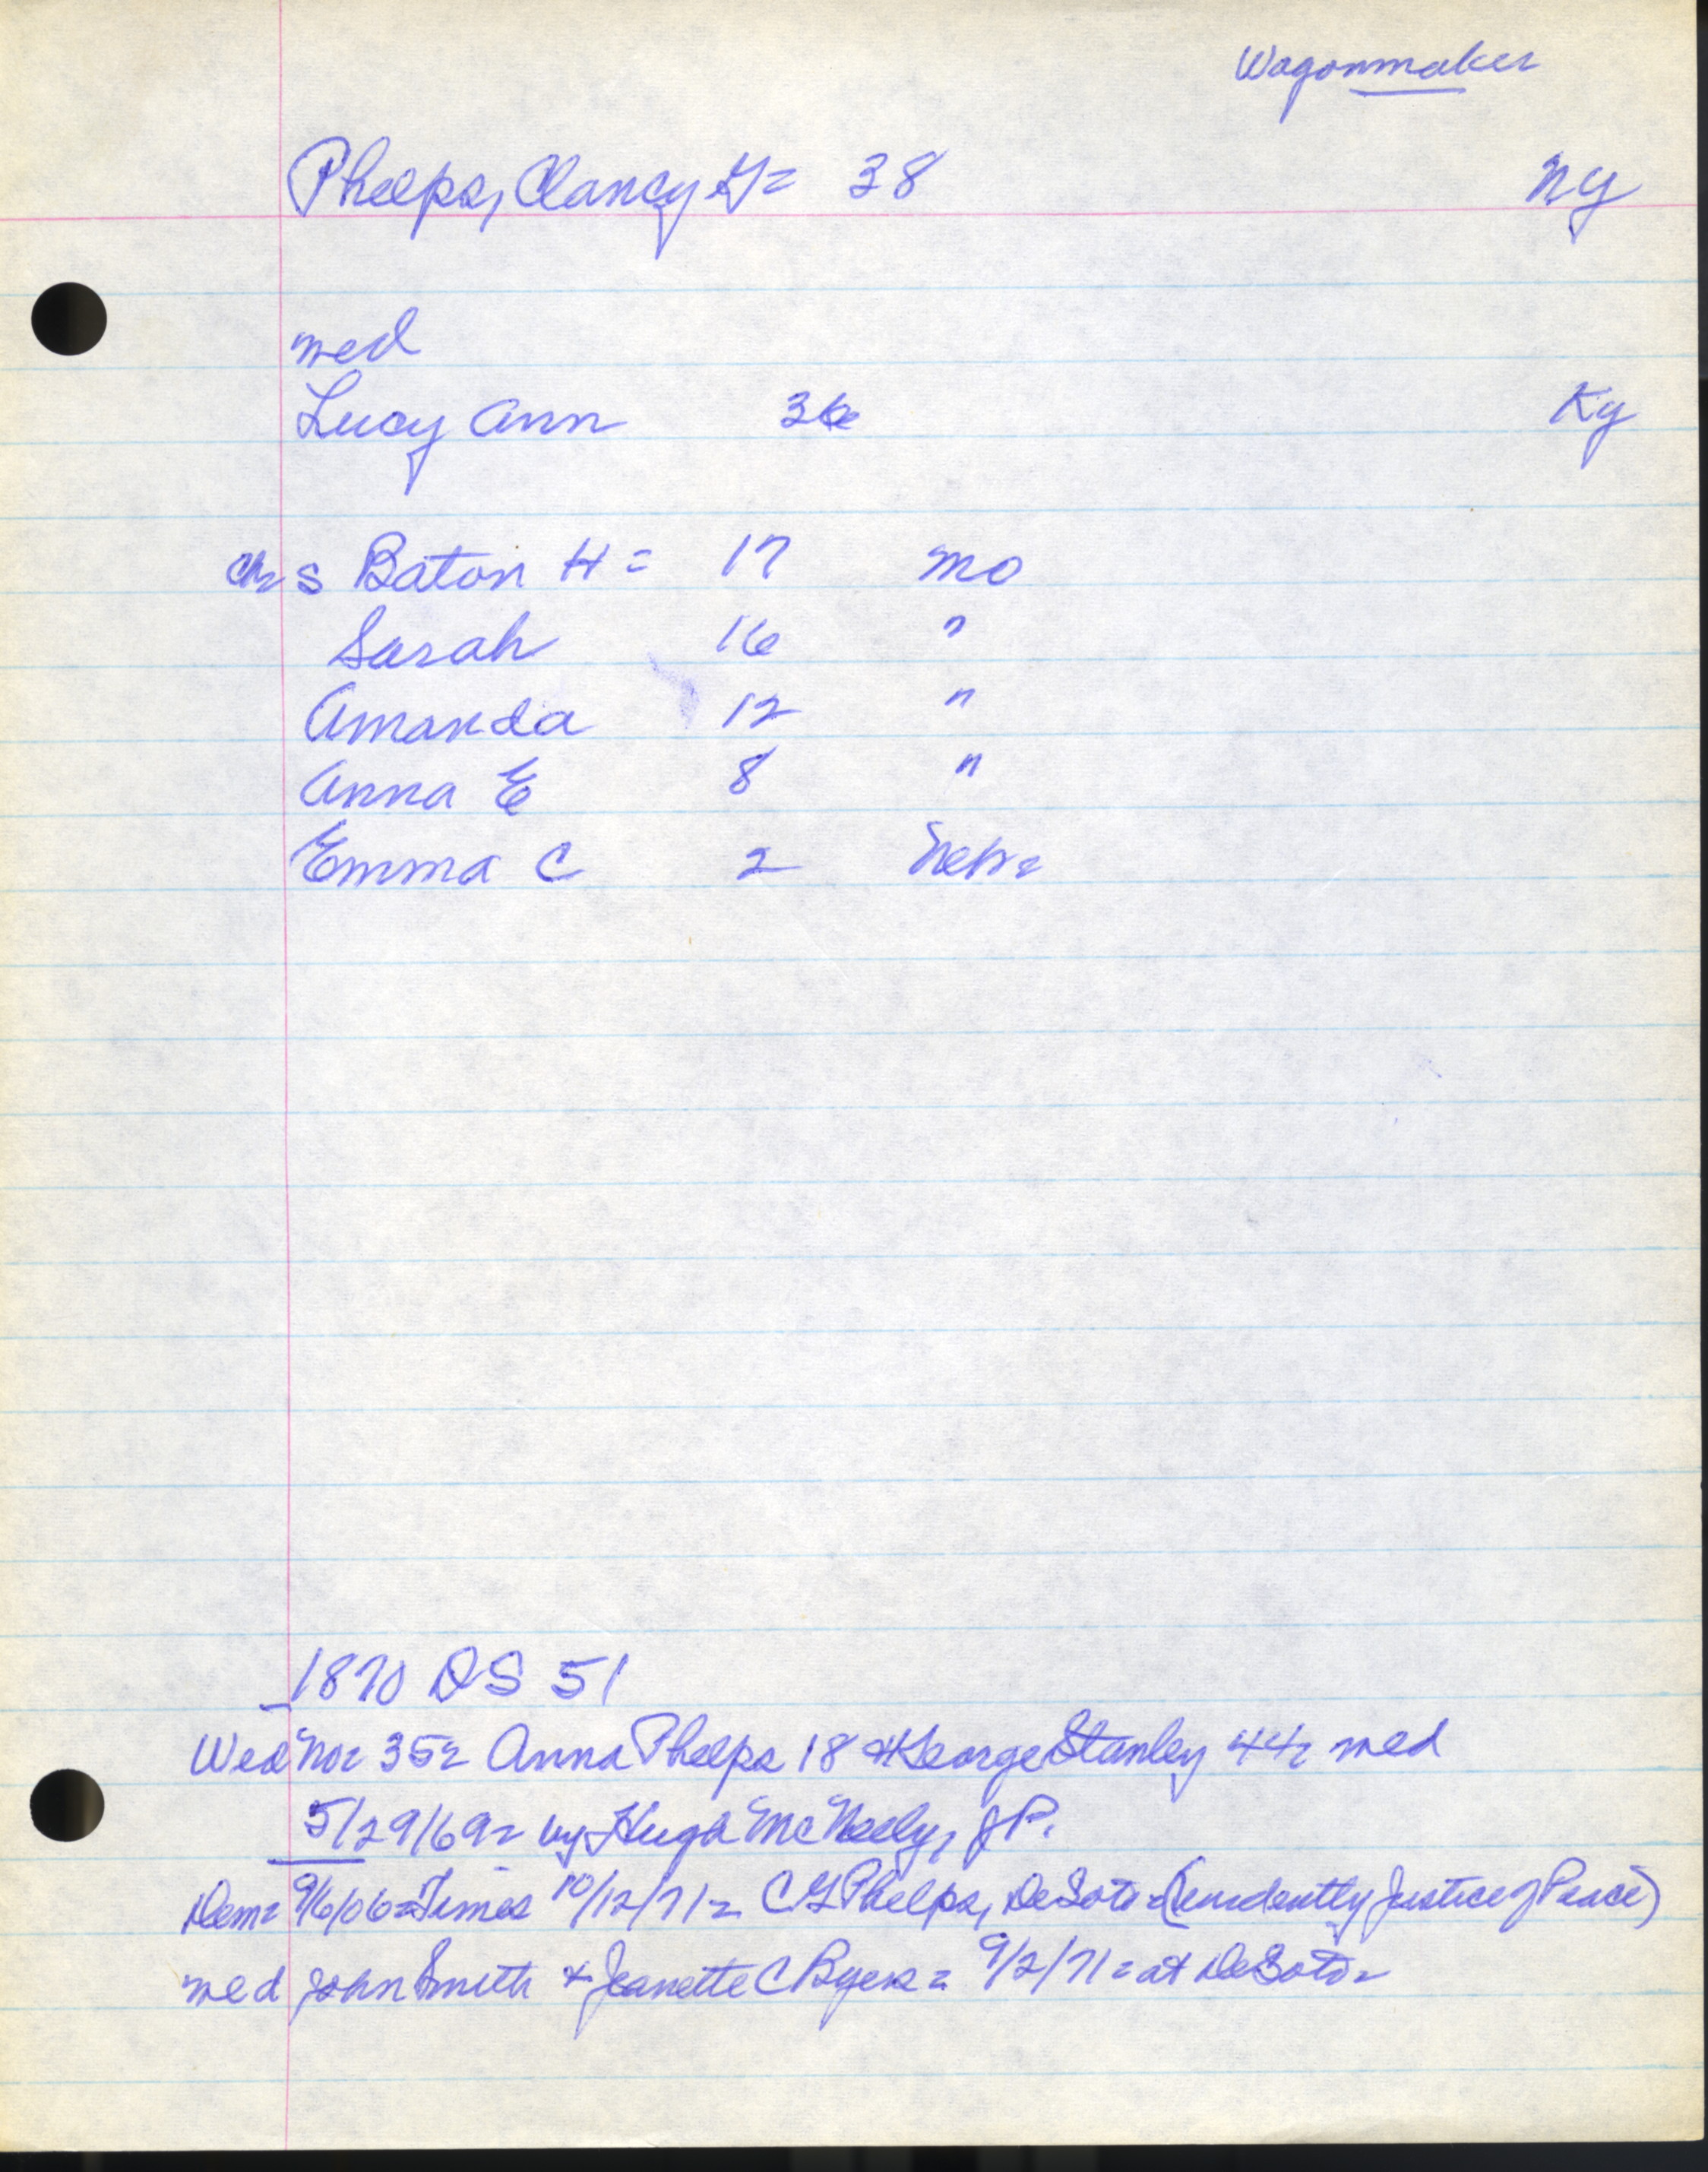 Wagonmaker
Phelps, Clancy G= 38 NY
med
Lucy Ann 36 Ky
Ch= s Baton H= 17 Mo
Sarah 16 "
Amanda 12 "
Anna E 8 "
Emma C 2 Nebr
1870 DS 51
Wed No= 35= Anna Phelps 18 & George Stanley 44= med
5/29/69= by Hugh McNeely, JP.
Dem= 9/6/06= Times 10/12/71= C G Phelps, DeSoto= (evidently Justice of Peace)
med John Smith & Jeanette C Byers= 9/2/71= at DeSoto=